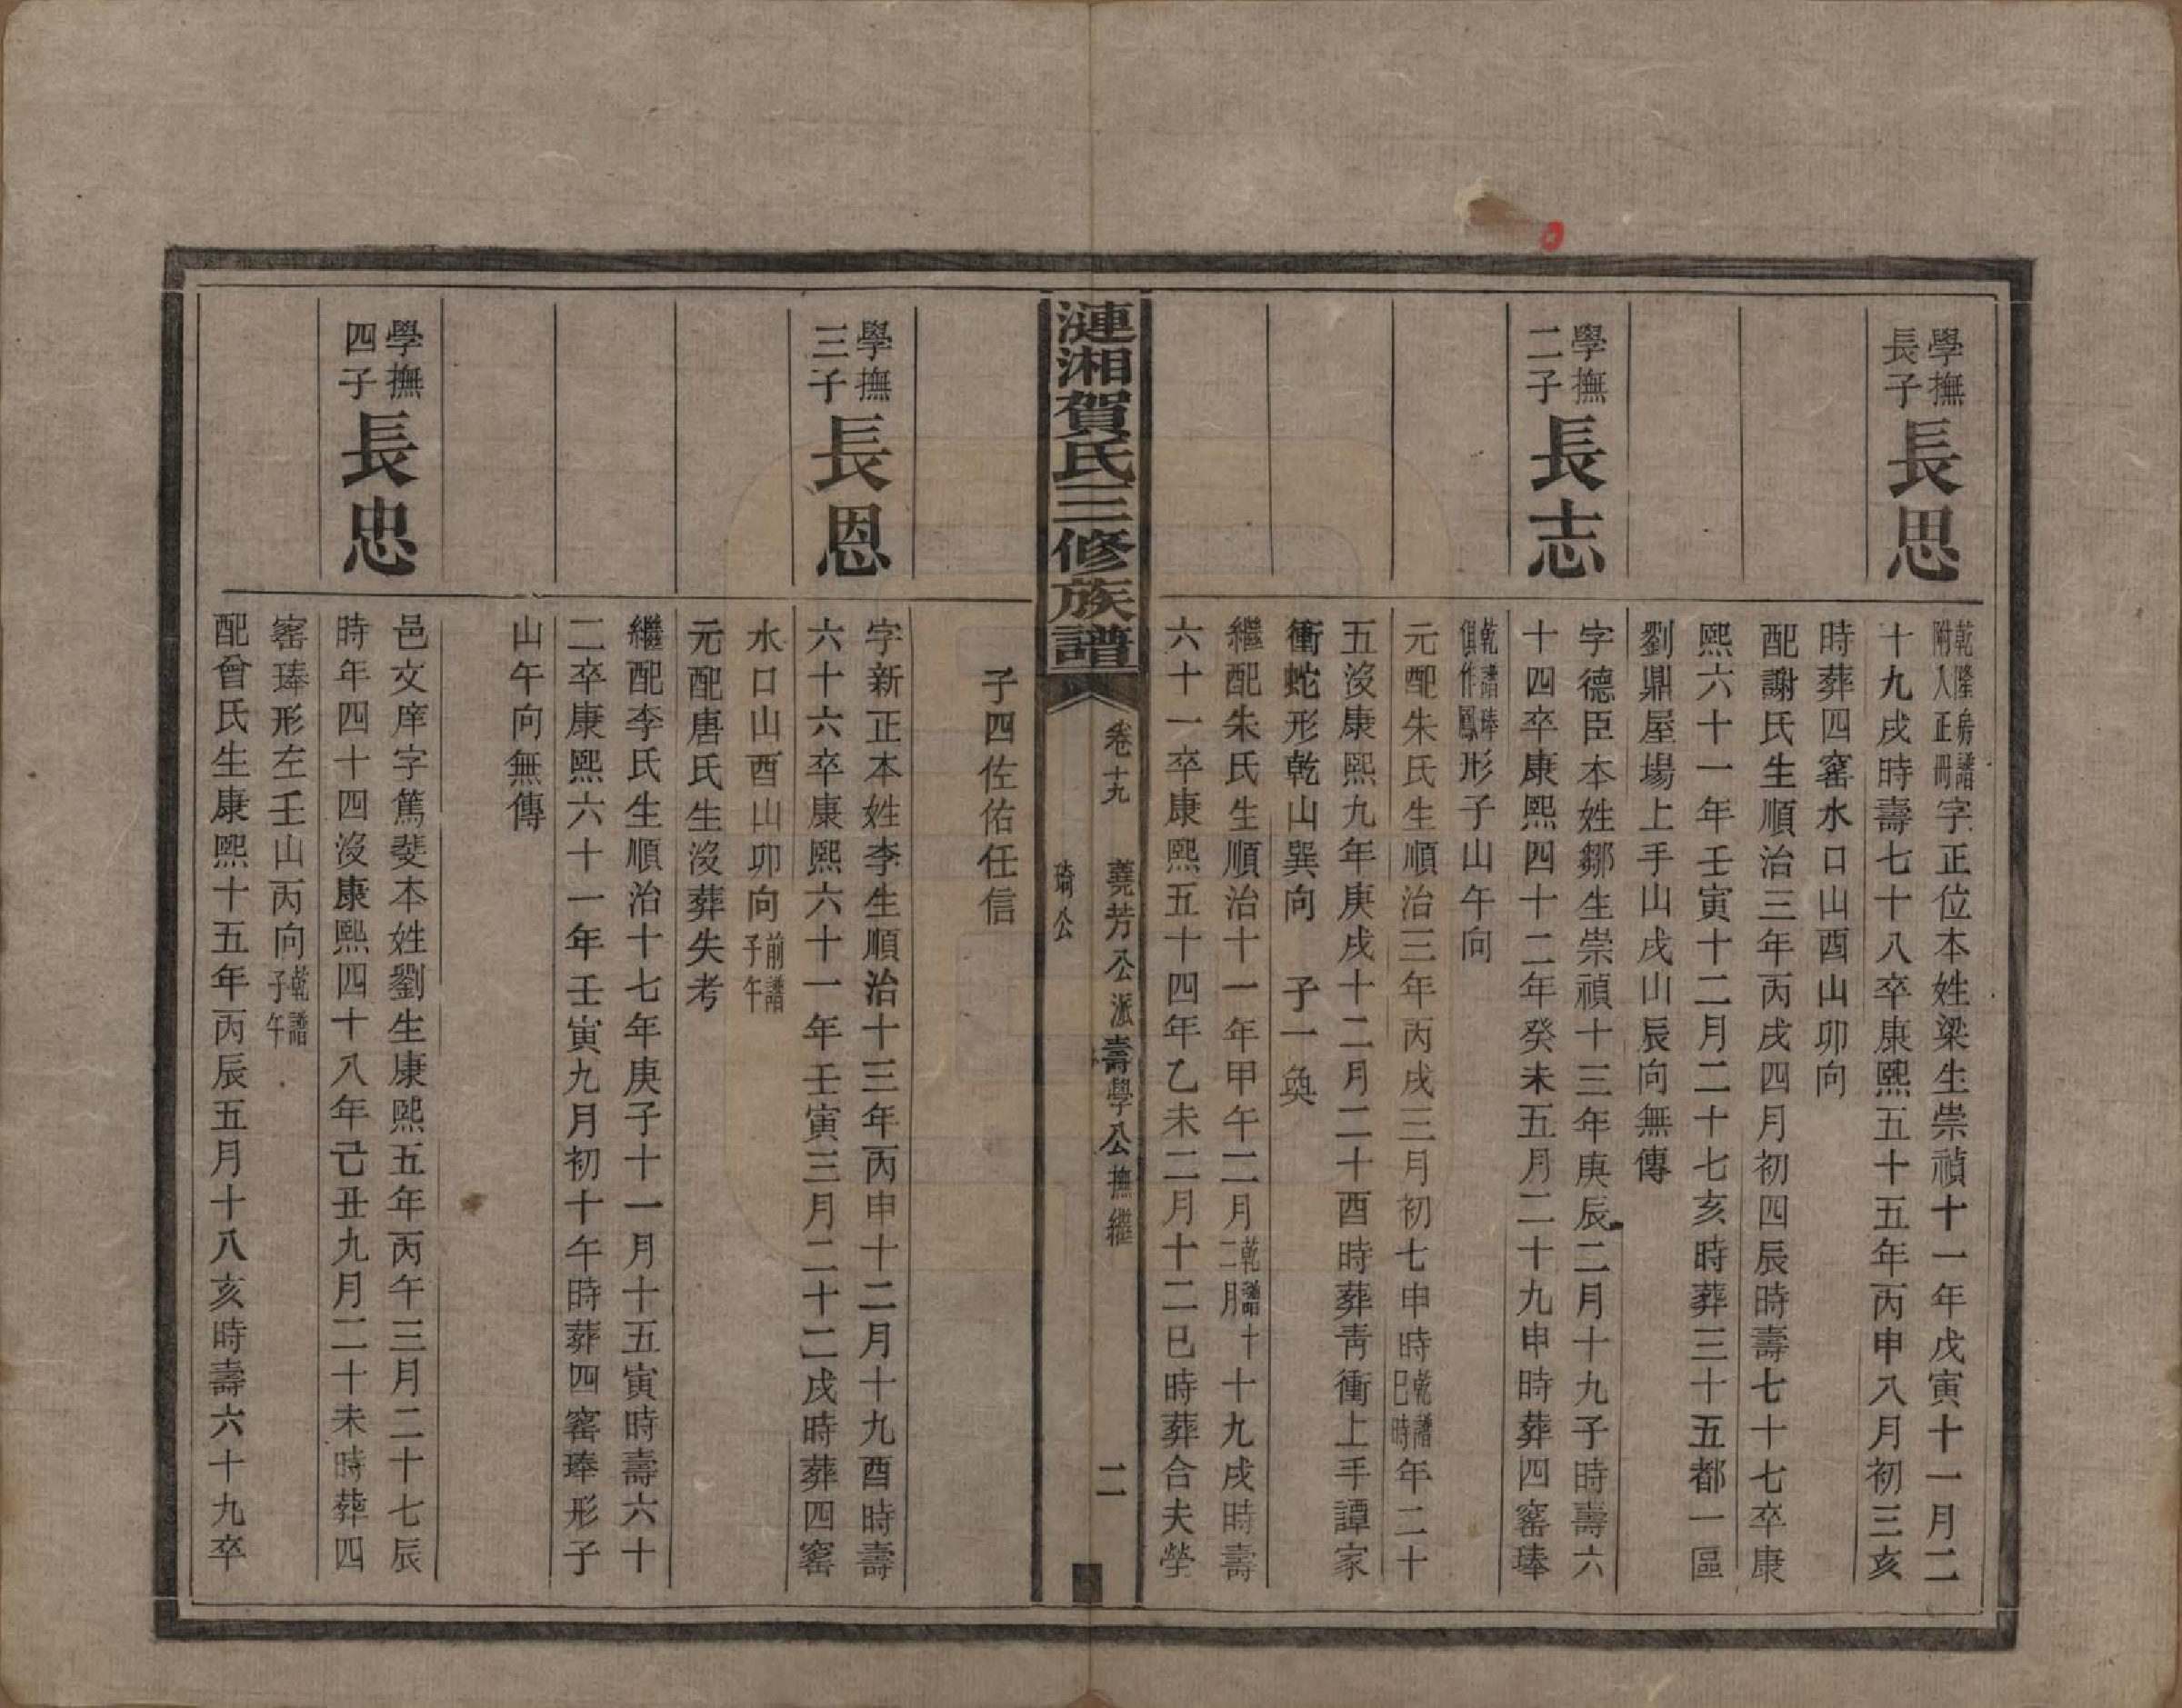 學撫
長子
長思
乾隆房譜
附入正冊
字正位本姓梁生崇禎十一年戊寅十一月二
十九戌時壽七十八卒康熙五十五年丙申八月初三亥
時葬四窰水口山酉山卯向
配謝氏生順治三年丙戌四月初四辰時壽七十七卒康
熙六十一年壬寅十二月二十七亥時葬三十五都一區
劉鼎屋場上手山戌山辰向無傳
學撫
二子
長志
字德臣本姓鄒生崇禎十三年庚辰二月十九子時壽六
十四卒康熙四十二年癸未五月二十九申時葬四窰琫
乾譜琫
俱作鳳
形子山午向
元配朱氏生順治三年丙戌三月初七申時
乾譜
巳時
年二十
五沒康熙九年庚戌十二月二十酉時葬靑衝上手譚家
衝蛇形乾山巽向 子一奐
繼配朱氏生順治十一年甲午二月
乾譜
二月
十十九戌時壽
六十一卒康熙五十四年乙未二月十二巳時葬合夫塋
漣湘賀氏三修族譜
卷十九
蕘芳公派壽學公撫繼
琦公
二
子四佐佑任信
學撫
三子
長恩
字新正本姓李生順治十三年丙申十二月十九酉時壽
六十六卒康熙六十一年壬寅三月二十二戌時葬四窰
水口山酉山卯向
前譜
子午
元配唐氏生沒葬失考
繼配李氏生順治十七年庚子十一月十五寅時壽六十
二卒康熙六十一年壬寅九月初十午時葬四窰琫形子
山午向無傳
學撫
四子
長忠
邑文庠字篤斐本姓劉生康熙五年丙午三月二十七辰
時年四十四沒康熙四十八年己丑九月二十未時葬四
窰琫形左壬山丙向
乾譜
子午
配曾氏生康熙十五年丙辰五月十八亥時壽六十九卒